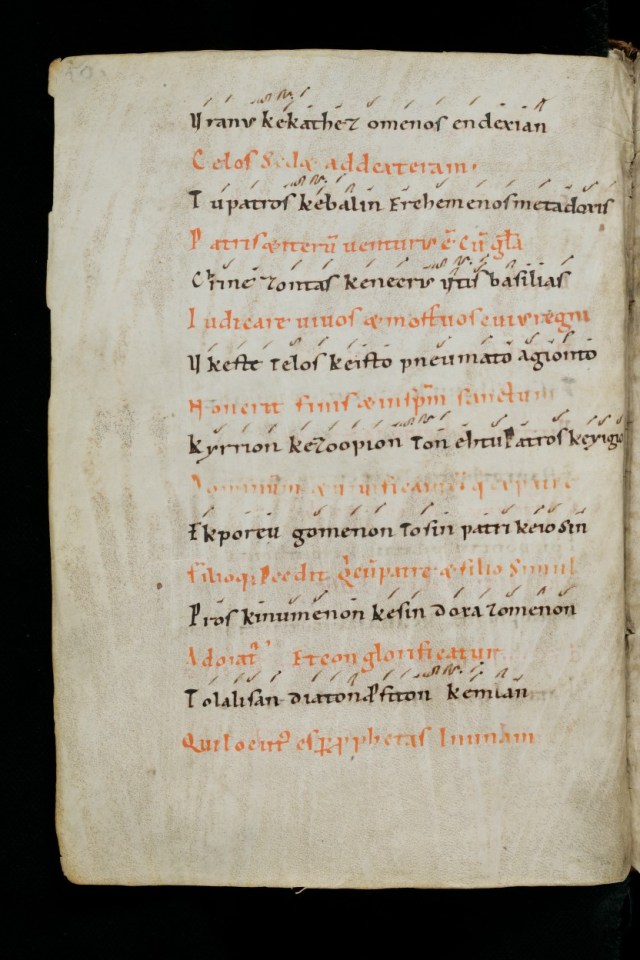 Yranu kekathez omenos endexian
Celos Sedæ addexteram.
Tupatros kebalin Erchemenosmetadoxis
Patris æiterū venturus ē Cū gła
Crine zontas keneerus ytis basilias
Iudicare uiuos æ mortuos cuius regni
Ykeste telos keisto pneumato agionto
Non erit finis æ in spm sanctum
Kyrrion kezoopion ton ektu Patros keyigu
Dominum æ uiuificantē q̄ ex patre
Ekporeu gomenon tosin patri keiosin
filioqi Peedit Qi cū patre æ filio Simul
Pros kinumenon kesin doxa zomenon
Adorat Et conglorificatur
Tolalisan diatonæsfiton kemian
Qui locut; es p pphetas In unam